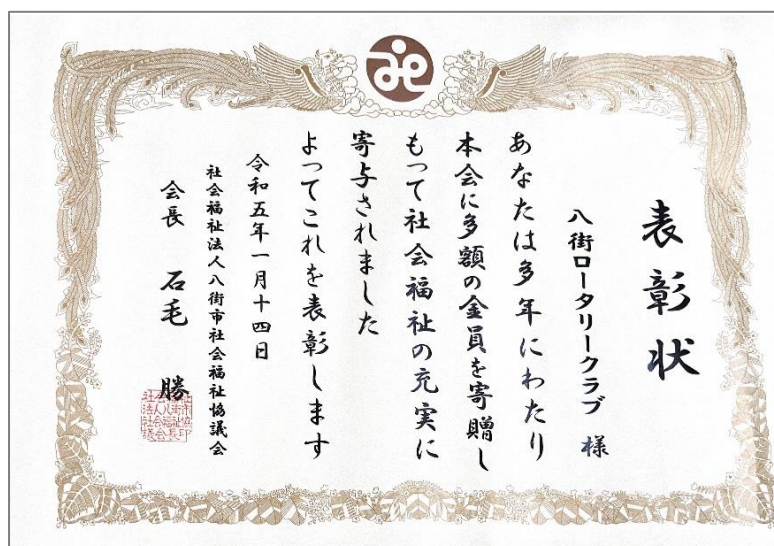 表彰状
八街ロータリークラブ 様
あなたは多年にわたり
本会に多額の金員を寄贈し
もって社会福祉の充実に
寄与されました
よってこれを表彰します
令和五年一月十四日
社会福祉法人八街市社会福祉協議会
会長 石毛 勝